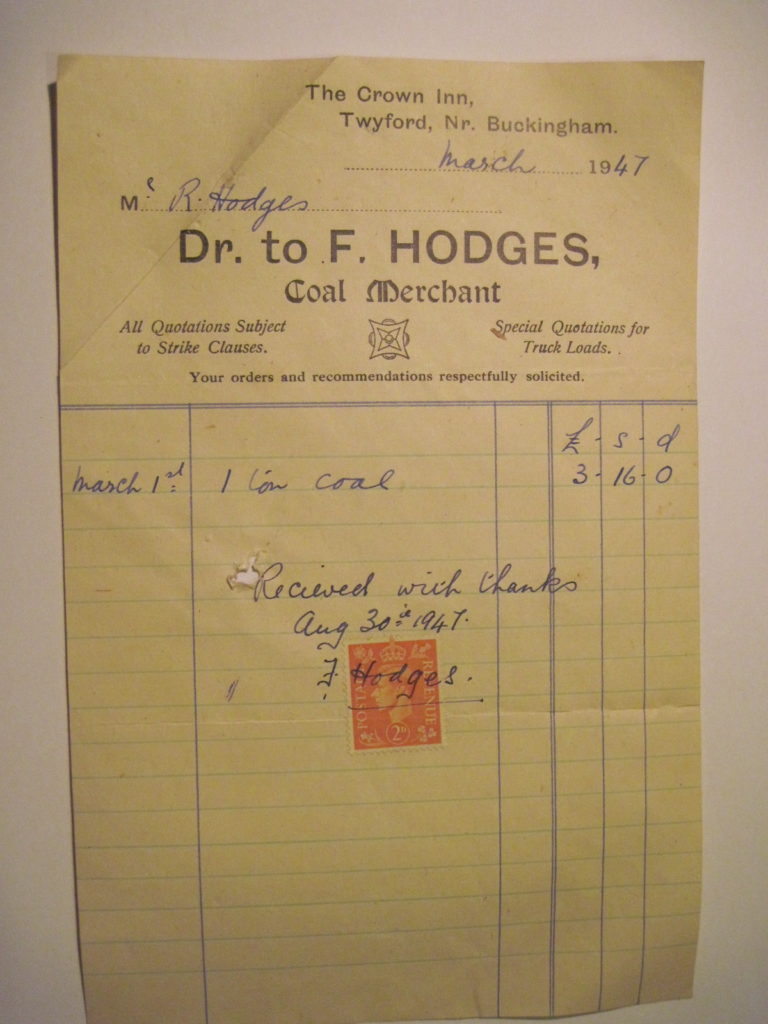 The Crown Inn,
Twyford, Nr. Buckingham.
March 1947
Mr R. Hodges
Dr. to F. HODGES,
Coal Merchant
All Quotations Subject
to Strike Clauses.
Special Quotations for
Truck Loads.
Your orders and recommendations respectfully solicited.
£ - s - d
March 1st 1 Ton Coal 3 - 16 - 0
Recieved with thanks
Aug 30th 1947.
F. Hodges.
POSTAGE REVENUE
2D